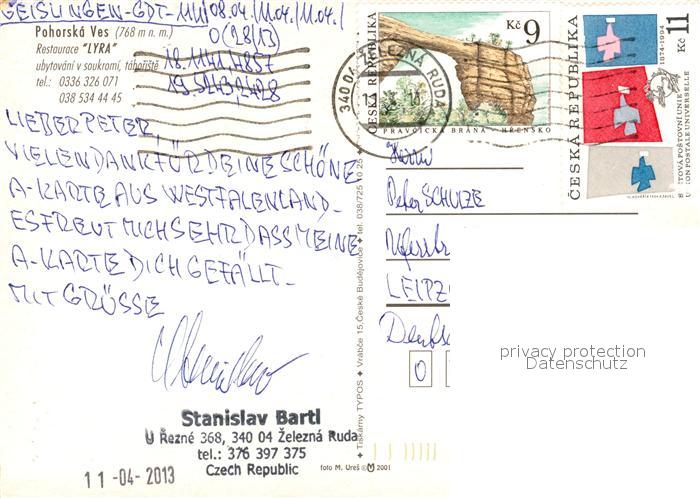 GEISLINGEN-GDT-111/08.04./11.04./11.04./
Pohorská Ves (768 m n. m.)
Restaurace "LYRA"
ubytování v soukromí, tábořiště
tel.: 0336 326 071
038 534 44 45
LIEBER PETER,
VIELEN DANK FÜR DEINE SCHÖNE
A-KARTE AUS WESTFALENLAND-
ES FREUT MICH SEHR DASS MEINE
A-KARTE DICH GEFÄLLT-
MIT GRÜSSE
Stanislav Bartl
U Řezné 368, 340 04 Železná Ruda
tel.: 376 397 375
Czech Republic
11-04-2013
foto M. Ureš © 2001
Tiskárny TYPOS ✦ Vrábče 15, České Budějovice ✦ tel. 038/725 10 25
340 04 ŽELEZNÁ RUDA
Kč 9
ČESKÁ REPUBLIKA
PRAVČICKÁ BRÁNA - HŘENSKO
Kč 11
1874-1994
ČESKÁ REPUBLIKA
SVĚTOVÁ POŠTOVNÍ UNIE
UNION POSTALE UNIVERSELLE
Herrn
Peter SCHULZE
LEIPZ
Deutsc
0
privacy protection
Datenschutz